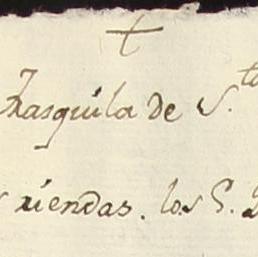 +
Trasquila de S.to
riendas. los S.